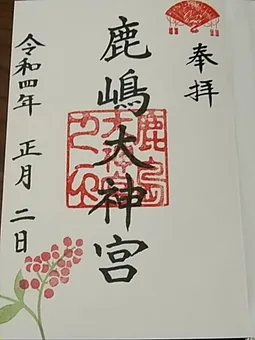 奉拝
鹿嶋大神宮
令和四年 正月 二日